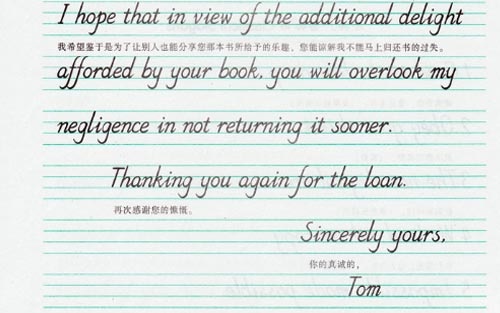 I hope that in view of the additional delight
我希望鉴于是为了让别人也能分享您那本书所给予的乐趣，您能谅解我不能马上归还书的过失。
afforded by your book, you will overlook my
negligence in not returning it sooner.
Thanking you again for the loan.
再次感谢您的慷慨。
Sincerely yours,
你的真诚的，
Tom